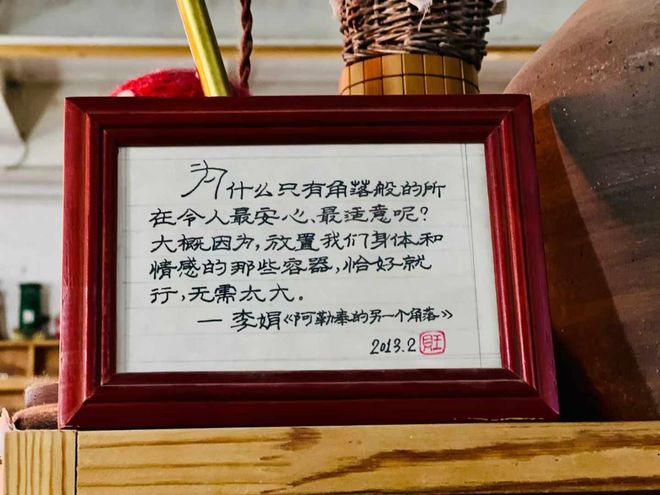 为什么只有角落般的所
在令人最安心、最适意呢？
大概因为，放置我们身体和
情感的那些容器，恰好就
行，无需太大。
— 李娟《阿勒泰的另一个角落》
2013.2